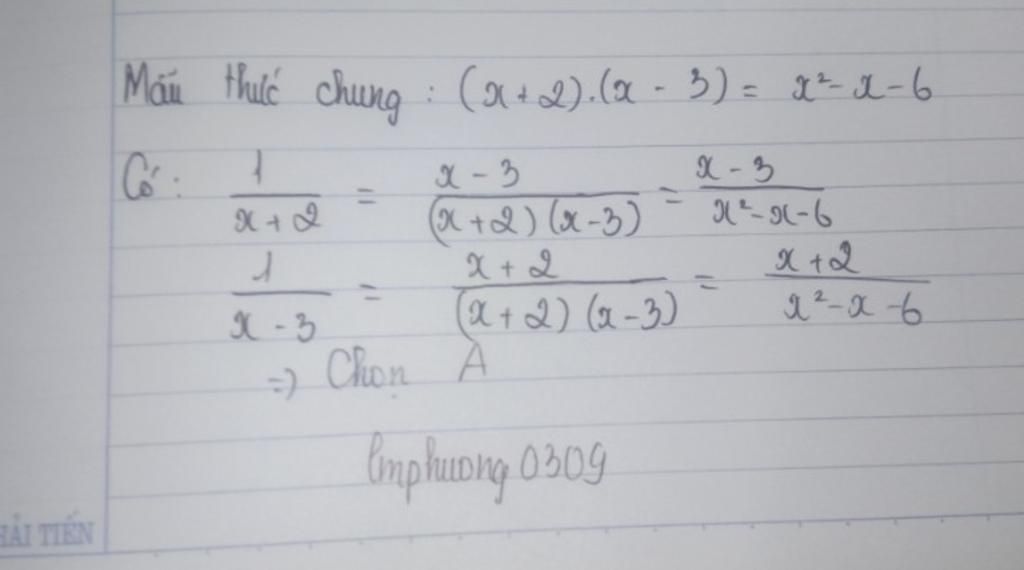 Mẫu thức chung : (x+2).(x - 3) = x² - x - 6
Có : 1/(x + 2) = (x - 3)/((x+2)(x-3)) = (x - 3)/(x² - x - 6)
1/(x - 3) = (x + 2)/((x+2)(x-3)) = (x + 2)/(x² - x - 6)
=) Chọn A
lmphuong0309
HẢI TIẾN